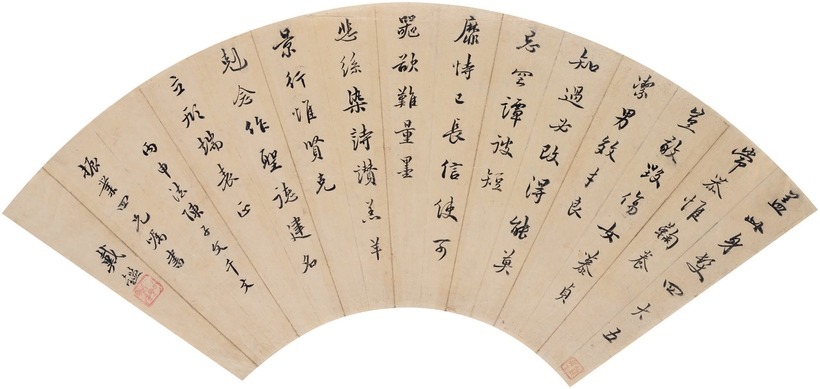 蓋此身髮四大五
常恭惟鞠養
豈敢毀傷女慕貞
潔男效才良
知過必改得能莫
忘罔譚彼短
靡恃己長信使可
器欲難量墨
悲絲染詩讚羔羊
景行惟賢克
剋念作聖德建名
立形端表正
丙申法陳子文千文
振業四兄囑書
戴